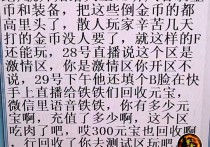 币和装备，把这些倒金币的都
高里头了，散人玩家辛苦几天
打的金币没人要了，就这样的F
还能玩，28号直播说这个区是
激情区，你是激情区你开区不
说，29号下午他还填个B脸在快
手上直播给铁铁们回收元宝，
微信里语音铁铁，你有多少元
宝啊，充值了多少啊，这个区
吃肉了吧，哎300元宝也回收啊
，行回收了你去测试区玩吧